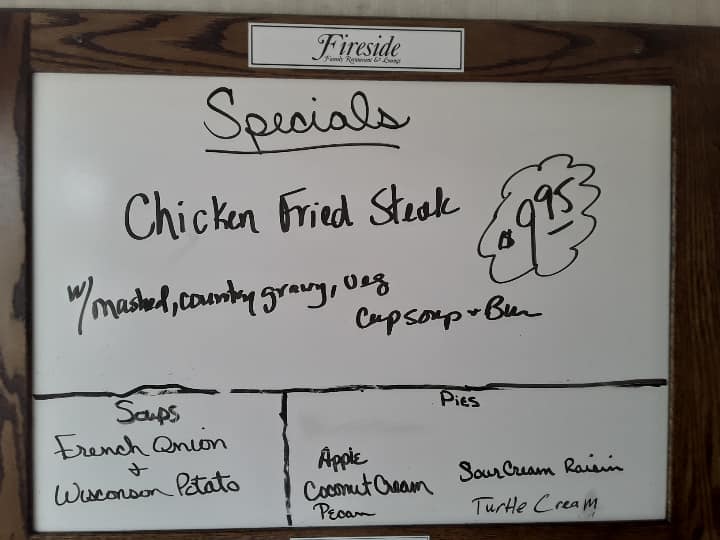 Fireside
Family Restaurant & Lounge
Specials
Chicken Fried Steak
$9.95
w/mashed, country gravy, veg
Cup soup + Bun
Soups
French Onion
+
Wisconson Potato
Pies
Apple
Coconut Cream
Pecan
Sour Cream Raisin
Turtle Cream